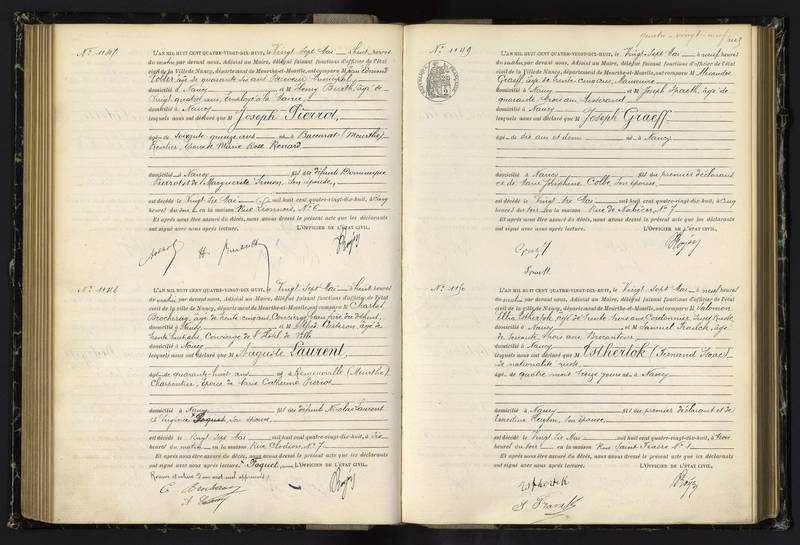 quatre-vingt-neuf
No 1147
L'AN MIL HUIT CENT QUATRE-VINGT-DIX-HUIT, le Vingt Sept Mai à huit heures
du matin par devant nous, Adjoint au Maire, délégué faisant fonctions d'officier de l'état
civil de la Ville de Nancy, département de Meurthe-et-Moselle, ont comparu M
âgé de quarante six ans
domicilié à Nancy et M Henry Barth, âgé de
Vingt quatre ans, Employé à la Mairie,
domicilié à Nancy
lesquels nous ont déclaré que M Joseph Pierrot,
âgé de soixante quinze ans né à Baccarat (Meurthe)
Rentier, époux de Marie Rose Renard
domicilié à Nancy fils des défunts Dominique
Pierrot et de Marguerite Simon, son épouse,
est décédé le Vingt Six Mai mil huit cent quatre-vingt-dix-huit, à cinq
heures du soir en la maison Rue Lionnois, No 6
Et après nous être assuré du décès, nous avons dressé le présent acte que les déclarants
ont signé avec nous après lecture. L'OFFICIER DE L'ÉTAT CIVIL,
No 1148
L'AN MIL HUIT CENT QUATRE-VINGT-DIX-HUIT, le Vingt Sept Mai à huit heures
du matin par devant nous, Adjoint au Maire, délégué faisant fonctions d'officier de l'état
civil de la ville de Nancy, département de Meurthe-et-Moselle, ont comparu M Charles
Brocheray, âgé de trente cinq ans, Concierge, beau frère du défunt,
domicilié à Nancy et M Alfred Parterou, âgé de
trente huit ans, Concierge de l'Hôtel de Ville
domicilié à Nancy
lesquels nous ont déclaré que M Auguste Laurent,
âgé de quarante huit ans né à Remenoville (Meurthe)
Charpentier, époux de Marie Catherine Pierrot
domicilié à Nancy fils des défunts Nicolas Laurent
et Virginie Paquet, son épouse,
est décédé le Vingt Sept Mai mil huit cent quatre-vingt-dix-huit, à six
heures du matin en la maison Rue Clodion, No 7
Et après nous être assuré du décès, nous avons dressé le présent acte que les déclarants
ont signé avec nous après lecture. Paquet L'OFFICIER DE L'ÉTAT CIVIL,
No 1149
L'AN MIL HUIT CENT QUATRE-VINGT-DIX-HUIT, le Vingt-Sept Mai à neuf heures
du matin, par devant nous, Adjoint au Maire, délégué faisant fonctions d'officier de l'état
civil de la Ville de Nancy, département de Meurthe-et-Moselle, ont comparu M Alexandre
Graeff, âgé de trente-cinq ans, Manœuvre
domicilié à Nancy et M Joseph Spaeth, âgé de
quarante trois ans Tisserand
domicilié à Nancy
lesquels nous ont déclaré que M Joseph Graeff
âgé de six ans et demi né à Nancy
domicilié à Nancy fils du premier déclarant
et de Marie Joséphine Colbé, son épouse,
est décédé le Vingt Six Mai mil huit cent quatre-vingt-dix-huit, à cinq
heures du soir en la maison Rue de Nabécor, No 7
Et après nous être assuré du décès, nous avons dressé le présent acte que les déclarants
ont signé avec nous après lecture. L'OFFICIER DE L'ÉTAT CIVIL,
No 1150
L'AN MIL HUIT CENT QUATRE-VINGT-DIX-HUIT, le Vingt-Sept Mai à neuf heures
du matin par devant nous, Adjoint au Maire, délégué faisant fonctions d'officier de l'état
civil de la ville de Nancy, département de Meurthe-et-Moselle, ont comparu M Salomon
Esthertok, âgé de trente trois ans, Cordonnier, Sujet Russe,
domicilié à Nancy et M Samuel Franck, âgé
de soixante trois ans Brocanteur
domicilié à Nancy
lesquels nous ont déclaré que M Esthertok (Fernand Isaac)
de nationalité russe,
âgé de quatre mois seize jours né à Nancy
domicilié à Nancy fils du premier déclarant et de
Ernestine Heyben, son épouse,
est décédé le Vingt Six Mai mil huit cent quatre-vingt-dix-huit, à trois
heures du soir en la maison Rue Saint Fiacre No 1
Et après nous être assuré du décès, nous avons dressé le présent acte que les déclarants
ont signé avec nous après lecture. L'OFFICIER DE L'ÉTAT CIVIL,
Esthertok
S Franck